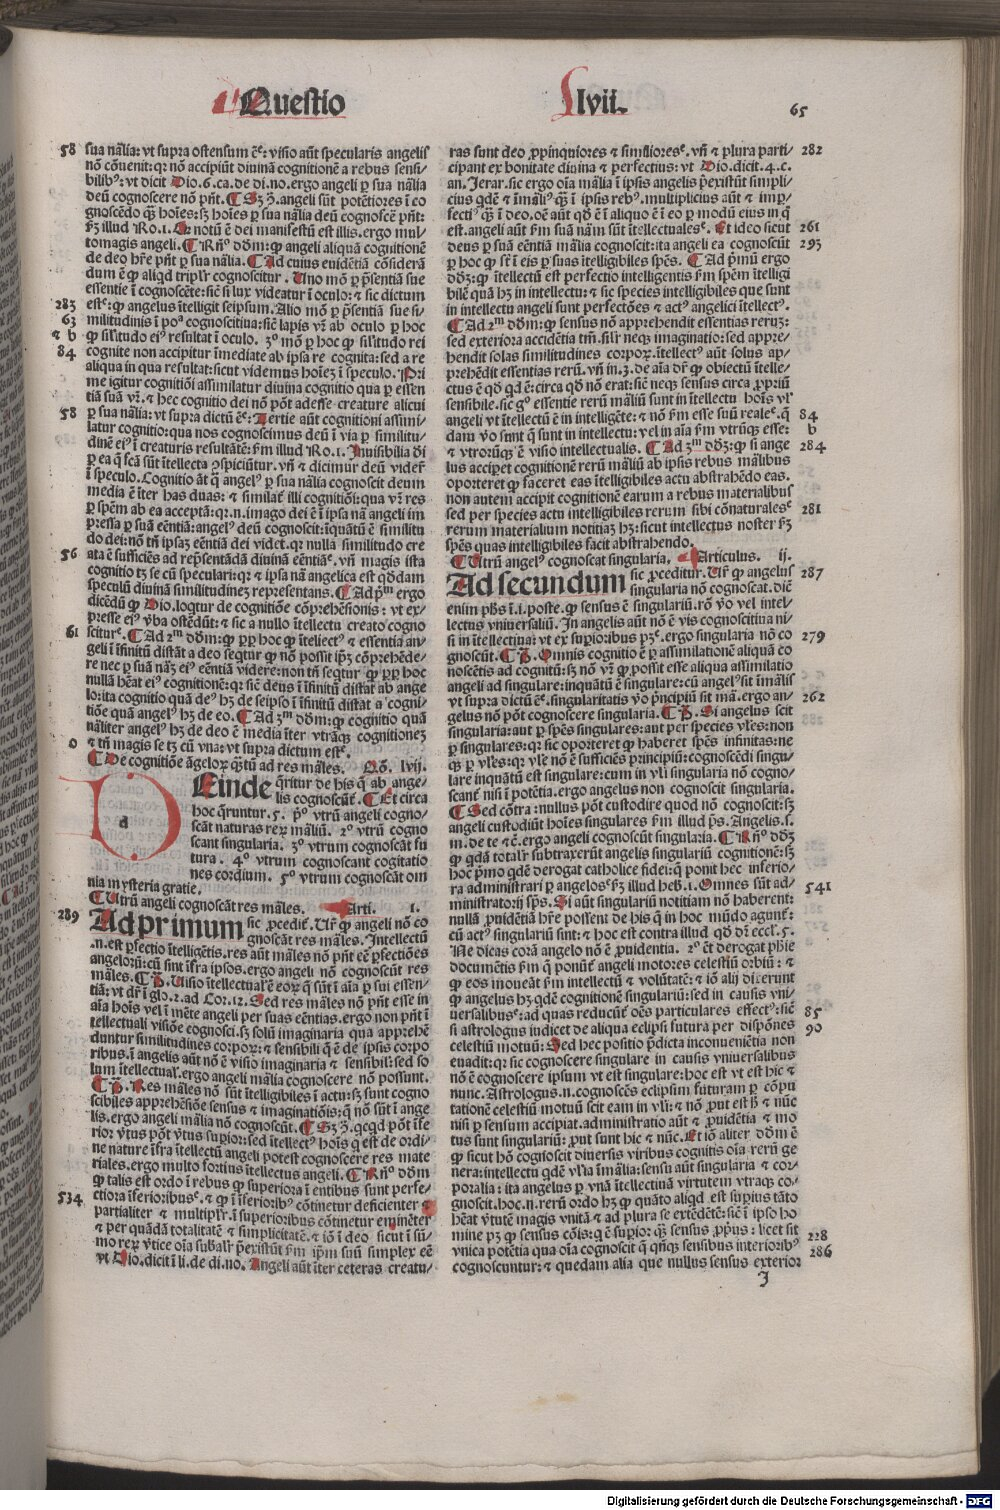 Questio
lvii.
65
58
sua nãlia: vt supra ostensum ẽ: visio aũt specularis angelis
nõ cõuenit: qꝛ nõ accipiũt diuinã cognitionẽ a rebus sensi-
bilibꝰ: vt dicit Dio. 6. ca. de di. no. ergo angeli ꝑ sua nãlia
deũ cognoscere nõ pñt. Sꝫ ꝫ. angeli sũt potẽtiores ĩ co
gnoscẽdo qꝫ hoĩes: sꝫ hoĩes ꝑ sua nãlia deũ cognoscẽ pñt:
fm illud Ro. 1. Qꝛ notũ ẽ dei manifestũ est illis. ergo mul-
tomagis angeli. Rñº dõm: ꝙ angeli aliquã cognitionẽ
de deo hr̃e pñt ꝑ sua nãlia. Ad cuius euidẽtiã cõsiderã
dum ẽ ꝙ aliqd tripl'r cognoscitur. Uno mõ ꝑ p̃sentiã sue
essentie ĩ cognoscẽte: sic̃ si lux videatur ĩ oculo: ⁊ sic dictum
283
63
⁊ b
84
est: ꝙ angelus ĩtelligit seipsum. Alio mõ ꝑ p̃sentiã sue si-
militudinis ĩ poª cognoscitiua: sic̃ lapis vr̃ ab oculo ꝑ hoc
ꝙ sil'itudo eiꝰ resultat ĩ oculo. 3º mõ ꝑ hoc ꝙ sil'itudo rei
cognite non accipitur ĩmediate ab ipsa re cognita: sed a re
aliqua in qua resultat: sicut videmus hoĩeꝫ ĩ speculo. Pri
me igitur cognitiõi assimilatur diuina cognitio qua ꝑ essen
tiã suã vr̃. ⁊ hec cognitio dei nõ põt adesse creature alicui
58
ꝑ sua nãlia: vt supra dictũ ẽ: Tertie aũt cognitiõi assimi-
latur cognitio: qua nos cognoscimus deũ ĩ via ꝑ similitu-
dinẽ eiꝰ ĩ creaturis resultãtẽ: fm illud Ro. 1. Inuisibilia dĩ
ꝑ ea q̃ fcã sũt ĩtellecta ꝯspiciũtur. vñ ⁊ dicimur deũ viderĩ
ĩ speculo. Cognitio aũt q̃ angelꝰ ꝑ sua nãlia cognoscit deum
media ẽ ĩter has duas: ⁊ similat̃ illi cognitiõi: qua vr̃ res
ꝑ spẽm ab ea acceptã: qꝛ. n. imago dei ẽ ĩ ipsa nã angeli im
pressa ꝑ suã eẽntiã: angelꝰ deũ cognoscit: ĩquãtũ ẽ similitu
do dei: nõ tñ ipsaꝫ eẽntiã dei videt. qꝛ nulla similitudo cre
56
ata ẽ sufficiẽs ad rep̃sentãdã diuinã eẽntiã. vñ magis ista
cognitio tꝫ se cũ speculari: qꝛ ⁊ ipsa nã angelica est qdam
speculũ diuinã similitudineꝫ representans. Ad pm ergo
dicẽdũ ꝙ Dio. loqtur de cognitiõe cõprehẽsionis: vt ex-
presse eiꝰ v̾ba ostẽdũt: ⁊ sic a nullo ĩtellectu creato cogno
61
scitur. Ad 2m dõm: ꝙ ꝑꝑ hoc ꝙ ĩtellectꝰ ⁊ essentia an-
geli ĩ ĩfinitũ distãt a deo seqtur ꝙ nõ possit ip̃ꝫ cõprehẽde-
re nec ꝑ suã nãꝫ eiꝰ eẽntiã videre: non tñ seqtur ꝙ ꝑꝑ hoc
nullã hẽat eiꝰ cognitionẽ: qꝛ sic̃ deus ĩ ĩfinitũ distat ab ange
lo: ita cognitio quã deꝰ hꝫ de seipso ĩ ĩfinitũ distat a cogni-
tiõe quã angelꝰ hꝫ de eo. Ad 3m dõm: ꝙ cognitio quã
nãliter angelꝰ hꝫ de deo ẽ media ĩter vtrãqꝫ cognitioneꝫ
o
⁊ tñ magis se tꝫ cũ vna: vt supra dictum est.
De cognitiõe ãgeloꝝ q̃tũ ad res mãles. Qõ. lvij.
d
DEinde q̃ritur de his q̃ ab ange-
lis cognoscũt. Et circa
hoc q̃runtur. 5. pº vtrũ angeli cogno-
scãt naturas reꝝ mãliũ. 2º vtrũ cogno
scant singularia. 3º vtrum cognoscãt fu
tura. 4º vtrum cognoscant cogitatio
nes cordium. 5º vtrum cognoscãt om
nia mysteria gratie.
Utrũ angeli cognoscãt res mãles. Arti. 1.
289
Ad primum sic ꝓcedit̃. Ur̃ ꝙ angeli nõ co
gnoscãt res mãles. Intellectũ
.n. est ꝑfectio ĩtelligẽtis. res aũt mãles nõ pñt eẽ ꝑfectiões
angeloꝝ: cũ sint ĩfra ipsos. ergo angeli nõ cognoscũt res
mãles. P. Uisio ĩtellectual' ẽ eoꝝ q̃ sũt ĩ aĩa ꝑ sui essen-
tiã: vt dr̃ ĩ glo. 2. ad Cor. 12. Sed res mãles nõ pñt esse in
aĩa hoĩs vel ĩ mẽte angeli per suas eẽntias. ergo non pñt ĩ
tellectuali visiõe cognosci. sꝫ solũ imaginaria qua apprehẽ
duntur similitudines corpoꝝ: ⁊ sensibili q̃ ẽ de ipsis corpo
ribus. ĩ angelis aũt nõ ẽ visio imaginaria ⁊ sensibil': sed so
lum ĩtellectual'. ergo angeli mãlia cognoscere nõ possunt.
P. Res mãles nõ sũt ĩtelligibiles ĩ actu: sꝫ sunt cogno
scibiles apprehẽsiõe sensus ⁊ imaginatiõis: q̃ nõ sũt ĩ ange
lis. ergo angeli mãlia nõ cognoscũt. Sꝫ ꝫ. qcqd põt ĩfe
rior v̾tus põt v̾tus supior: sed ĩtellectꝰ hoĩs q̃ est de ordi-
ne nature ĩfra ĩtellectũ angeli potest cognoscere res mate
riales. ergo multo fortius ĩtellectus angeli. Rñº dõm
ꝙ talis est ordo ĩ rebus ꝙ superiora ĩ entibus sunt perfe-
534
ctiora ĩferioribus. ⁊ ꝙ ĩ ĩferioribꝰ cõtinetur deficienter ⁊
partialiter ⁊ multipl'r. ĩ superioribus cõtinetur eminẽter
⁊ per quãdã totalitatẽ ⁊ simplicitatẽ. ⁊ iõ ĩ deo sicut ĩ sũ-
mo reꝝ v̾tice oĩa subal'r p̃existũt fm ip̃m suũ simplex eẽ
vt Dio. dicit ĩ li. de di. no. Angeli aũt ĩter ceteras creatu-
282
ras sunt deo ꝓpinquiores ⁊ similiores. vñ ⁊ plura parti-
cipant ex bonitate diuina ⁊ perfectius: vt Dio. dicit. 4. c.
an. Ierar. sic ergo oĩa mãlia ĩ ipsis angelis p̃existũt simpli-
cius qdẽ ⁊ ĩmãliꝰ q̃ ĩ ipsis rebꝰ. multiplicius aũt ⁊ imꝑ-
fectiꝰ q̃ ĩ deo. oẽ aũt qd ẽ ĩ aliquo ẽ ĩ eo ꝑ modũ eius in q̃
261
est. angeli aũt fm suã nãm sũt ĩtellectuales. Et ideo sicut
293
deus ꝑ suã eẽntiã mãlia cognoscit: ita angeli ea cognoscũt
ꝑ hoc ꝙ sẽ ĩ eis ꝑ suas ĩtelligibiles spẽs. Ad p̃mũ ergo
dõꝫ: ꝙ ĩtellectũ est perfectio intelligentis fm spẽm ĩtelligi
bilẽ quã hꝫ in intellectu: ⁊ sic species intelligibiles que sunt
in intellectu angeli sunt perfectões ⁊ actꝰ angelici ĩtellectꝰ.
Ad 2m dõm: ꝙ sensus nõ apprehendit essentias rerum:
sed exteriora accidẽtia tm̃. sil'r neqꝫ imaginatio: sed appre-
hendit solas similitudines corpoꝝ. ĩtellectꝰ aũt solus ap-
prehẽdit essentias rerũ. vñ in. 3. de aĩa dr̃ ꝙ obiectũ ĩtelle-
ctus ẽ qd qd ẽ: circa qd nõ erat: sic̃ neqꝫ sensus circa ꝓpriũ
sensibile. sic gº essentie rerũ mãliũ sunt in ĩtellectu hoĩs vl'
84
angeli vt ĩtellectũ ẽ in intelligẽte: ⁊ nõ fm esse suũ reale. q̃
b
dam v̾o sunt q̃ sunt in intellectu: vel in aĩa fm vtrũqꝫ esse:
284
⁊ vtroruꝫqꝫ ẽ visio intellectualis. Ad 3m dõꝫ: ꝙ si ange
lus accipet cognitionẽ rerũ mãliũ ab ipsis rebus mãlibus
oporteret ꝙ faceret eas ĩtelligibiles actu abstrahẽdo eas.
non autem accipit cognitionẽ earum a rebus materialibus
281
sed per species actu intelligibiles rerum sibi cõnaturales
rerum materialium notitiaꝫ hꝫ: sicut intellectus noster fm
spẽs quas intelligibiles facit abstrahendo.
Utrũ angelꝰ cognoscat singularia. Articulus. ij.
287
Ad secundum sic ꝓceditur. Ur̃ ꝙ angelus
singularia nõ cognoscat. dic̃
enim phs ĩ. i. poste. ꝙ sensus ẽ singulariũ. rõ v̾o vel intel-
lectus vniuersaliũ. In angelis aũt nõ ẽ vis cognoscitiua ni
279
si in ĩtellectiua: vt ex supioribus pꝫ. ergo singularia nõ co
gnoscũt. P. Omnis cognitio ẽ ꝑ assimilationẽ aliquã co
noscẽtis ad cognitũ: sꝫ nõ vr̃ ꝙ possit esse aliqua assimilatio
angeli ad singulare: inquãtũ ẽ singulare: cũ angelꝰ sit ĩmãlis
262
vt supra dictũ ẽ. singularitatis v̾o p̃ncipiũ sit mã. ergo an-
gelus nõ põt cognoscere singularia. P. Si angelus scit
singularia: aut ꝑ spẽs singulares: aut per species vl'es: non
ꝑ singulares: qꝛ sic oporteret ꝙ haberet spẽs infinitas: ne
qꝫ ꝑ vl'es: qꝛ vl'e nõ ẽ sufficiẽs principiũ: cognoscẽdi singu-
lare inquãtũ est singulare: cum in vl'i singularia nõ cogno-
scant̃ nisi ĩ potẽtia. ergo angelus non cognoscit singularia.
Sed cõtra: nullus põt custodire quod nõ cognoscit: sꝫ
angeli custodiũt hoĩes singulares fm illud p̃s. Angelis. s.
m. de te ⁊c̃. ergo angeli cognoscũt singularia. Rñº dõꝫ
ꝙ qdã total'r subtraxerũt angelis singulariũ cognitionẽ: sꝫ
hoc p̃mo qdẽ derogat catholice fidei: q̃ ponit hec inferio-
541
ra administrari ꝑ angelos: fm illud heb. 1. Omnes sũt ad-
ministratorij sp̃s. Si aũt singulariũ notitiam nõ haberent:
nullã ꝓuidẽtiã hr̃e possent de his q̃ in hoc mũdo agunt̃:
cũ actꝰ singulariũ sint: ⁊ hoc est contra illud qd dr̃ eccl'. 5.
Ne dicas corã angelo nõ ẽ ꝓuidentia. 2º ẽt derogat phĩe
documẽtis fm q̃ ponũt̃ angeli motores celestiũ orbiũ: ⁊
ꝙ eos moueãt fm intellectũ ⁊ volũtatẽ: ⁊ iõ alij dixerunt
ꝙ angelus hꝫ qdẽ cognitionẽ singulariũ: sed in causis vni-
85
uersalibus: ad quas reducũt̃ oẽs particulares effectꝰ: sic̃
90
si astrologus iudicet de aliqua eclipsi futura per dispõnes
celestiũ motuũ: Sed hec positio p̃dicta inconueniẽtia non
euadit: qꝛ sic cognoscere singulare in causis vniuersalibus
nõ ẽ cognoscere ipsum vt est singulare: hoc est vt est hic ⁊
nunc. Astrologus. n. cognoscẽs eclipsim futuram ꝑ cõpu
tationẽ celestiũ motuũ scit eam in vl'i: ⁊ nõ ꝓut est hic ⁊ nũc
nisi ꝑ sensum accipiat. administratio aũt ⁊ ꝓuidẽtia ⁊ mo
tus sunt singulariũ: ꝓut sunt hic ⁊ nũc. Et iõ aliter dõm ẽ
ꝙ sicut hõ cognoscit diuersis viribus cognitis oĩa rerũ ge
nera: intellectu qdẽ vl'ia ĩmãlia: sensu aũt singularia ⁊ cor-
poralia: ita angelus ꝑ vnã ĩtellectinã virtutem vtraqꝫ co-
gnoscit. hoc. n. rerũ ordo hꝫ ꝙ quãto aliqd est supius tãto
hẽat v̾tutẽ magis vnitã ⁊ ad plura se extẽdẽtẽ: sic̃ ĩ ipso ho
228
mine pꝫ ꝙ sensus cõis: q̃ ẽ supior: q̃ sensus ꝓprius: licet sit
286
vnica potẽtia qua oĩa cognoscit q̃ qnqꝫ sensibus interioribꝰ
cognoscuntur: ⁊ quedam alia que nullus sensus exterior
J
Digitalisierung gefördert durch die Deutsche Forschungsgemeinschaft - DFG